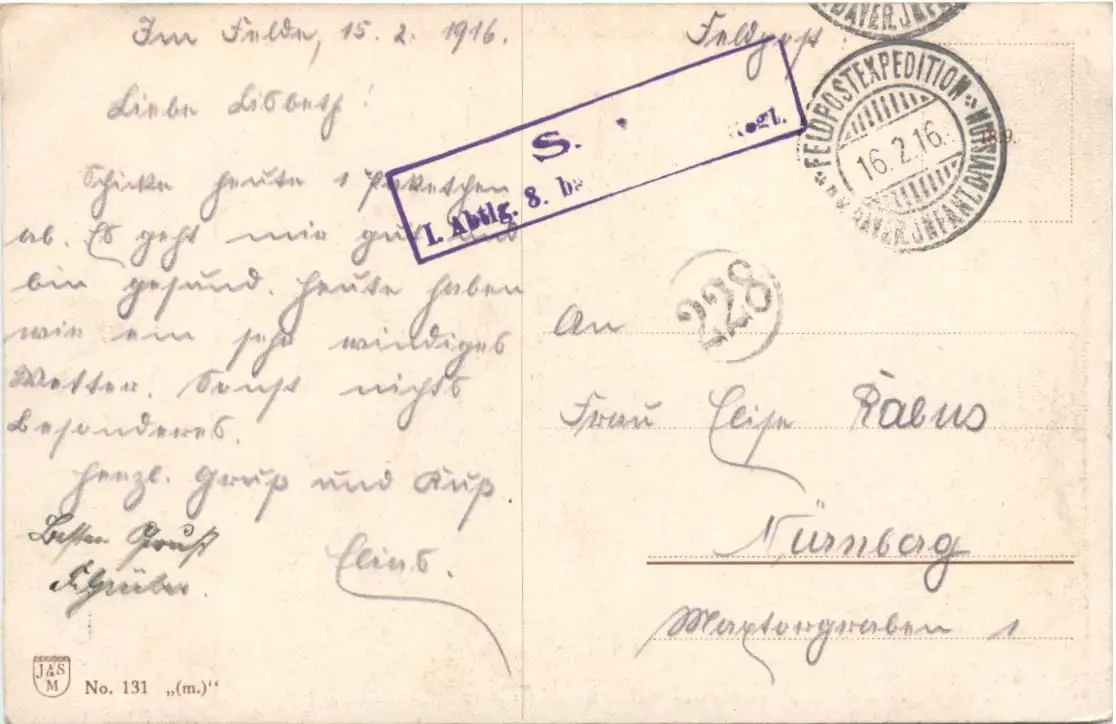 Im Felde, 15. 2. 1916.
Liebe Lisbeth!
Schicke heute 1 Paketchen
ab. Es geht mir gut und
bin gesund. Heute haben
wir ein sehr windiges
Wetter. Sonst nichts
Besonderes.
Herzl. Gruß und Kuß.
Besten Gruß
Feldpost
S.
Regt.
I. Abtlg. 8. b
FELDPOSTEXPEDITION
16.2.16.
BAYER. INFANT. DIVISION
BAYER. INFANT.
228
An
Frau Elise Rabus
Nürnberg
Maxtorgraben 1
J&S
M
No. 131 „(m.)“